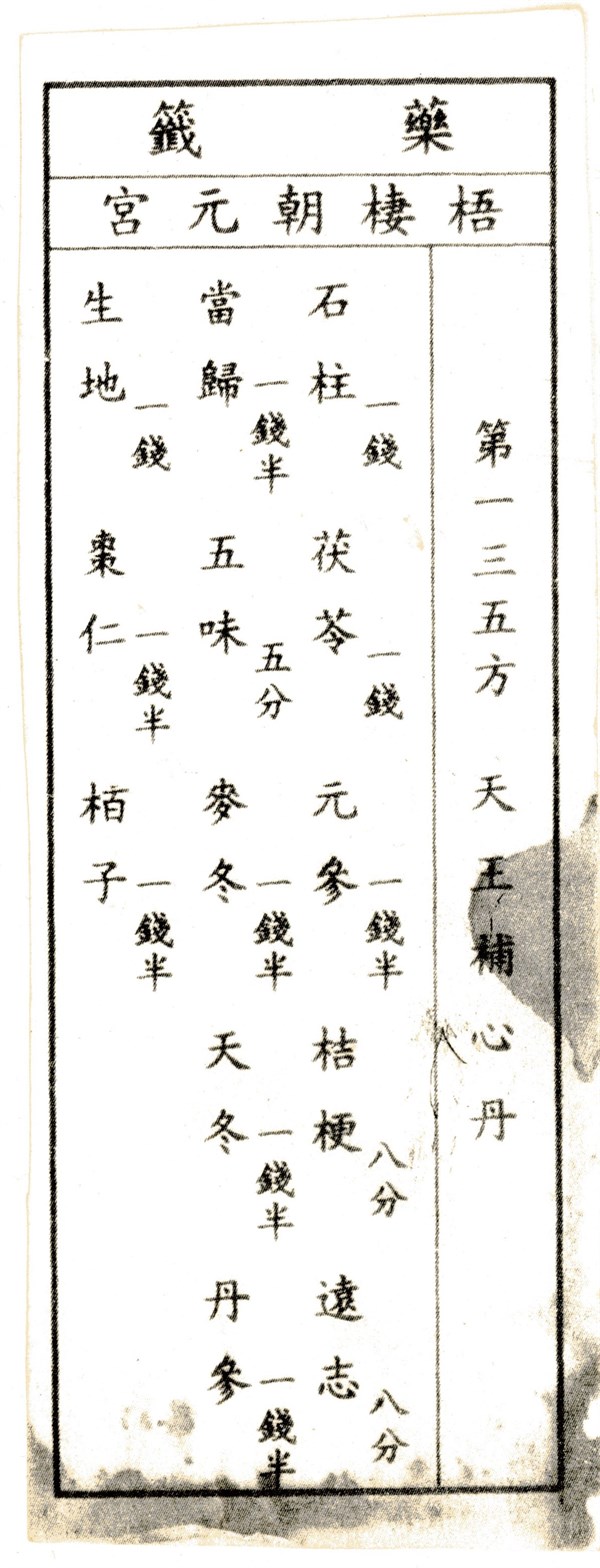 藥籤
梧棲朝元宮
第一三五方 天王補心丹
石柱一錢 茯苓一錢 元參一錢半 桔梗八分 遠志八分
當歸一錢半 五味五分 麥冬一錢半 天冬一錢半 丹參一錢半
生地一錢 棗仁一錢半 栢子一錢半